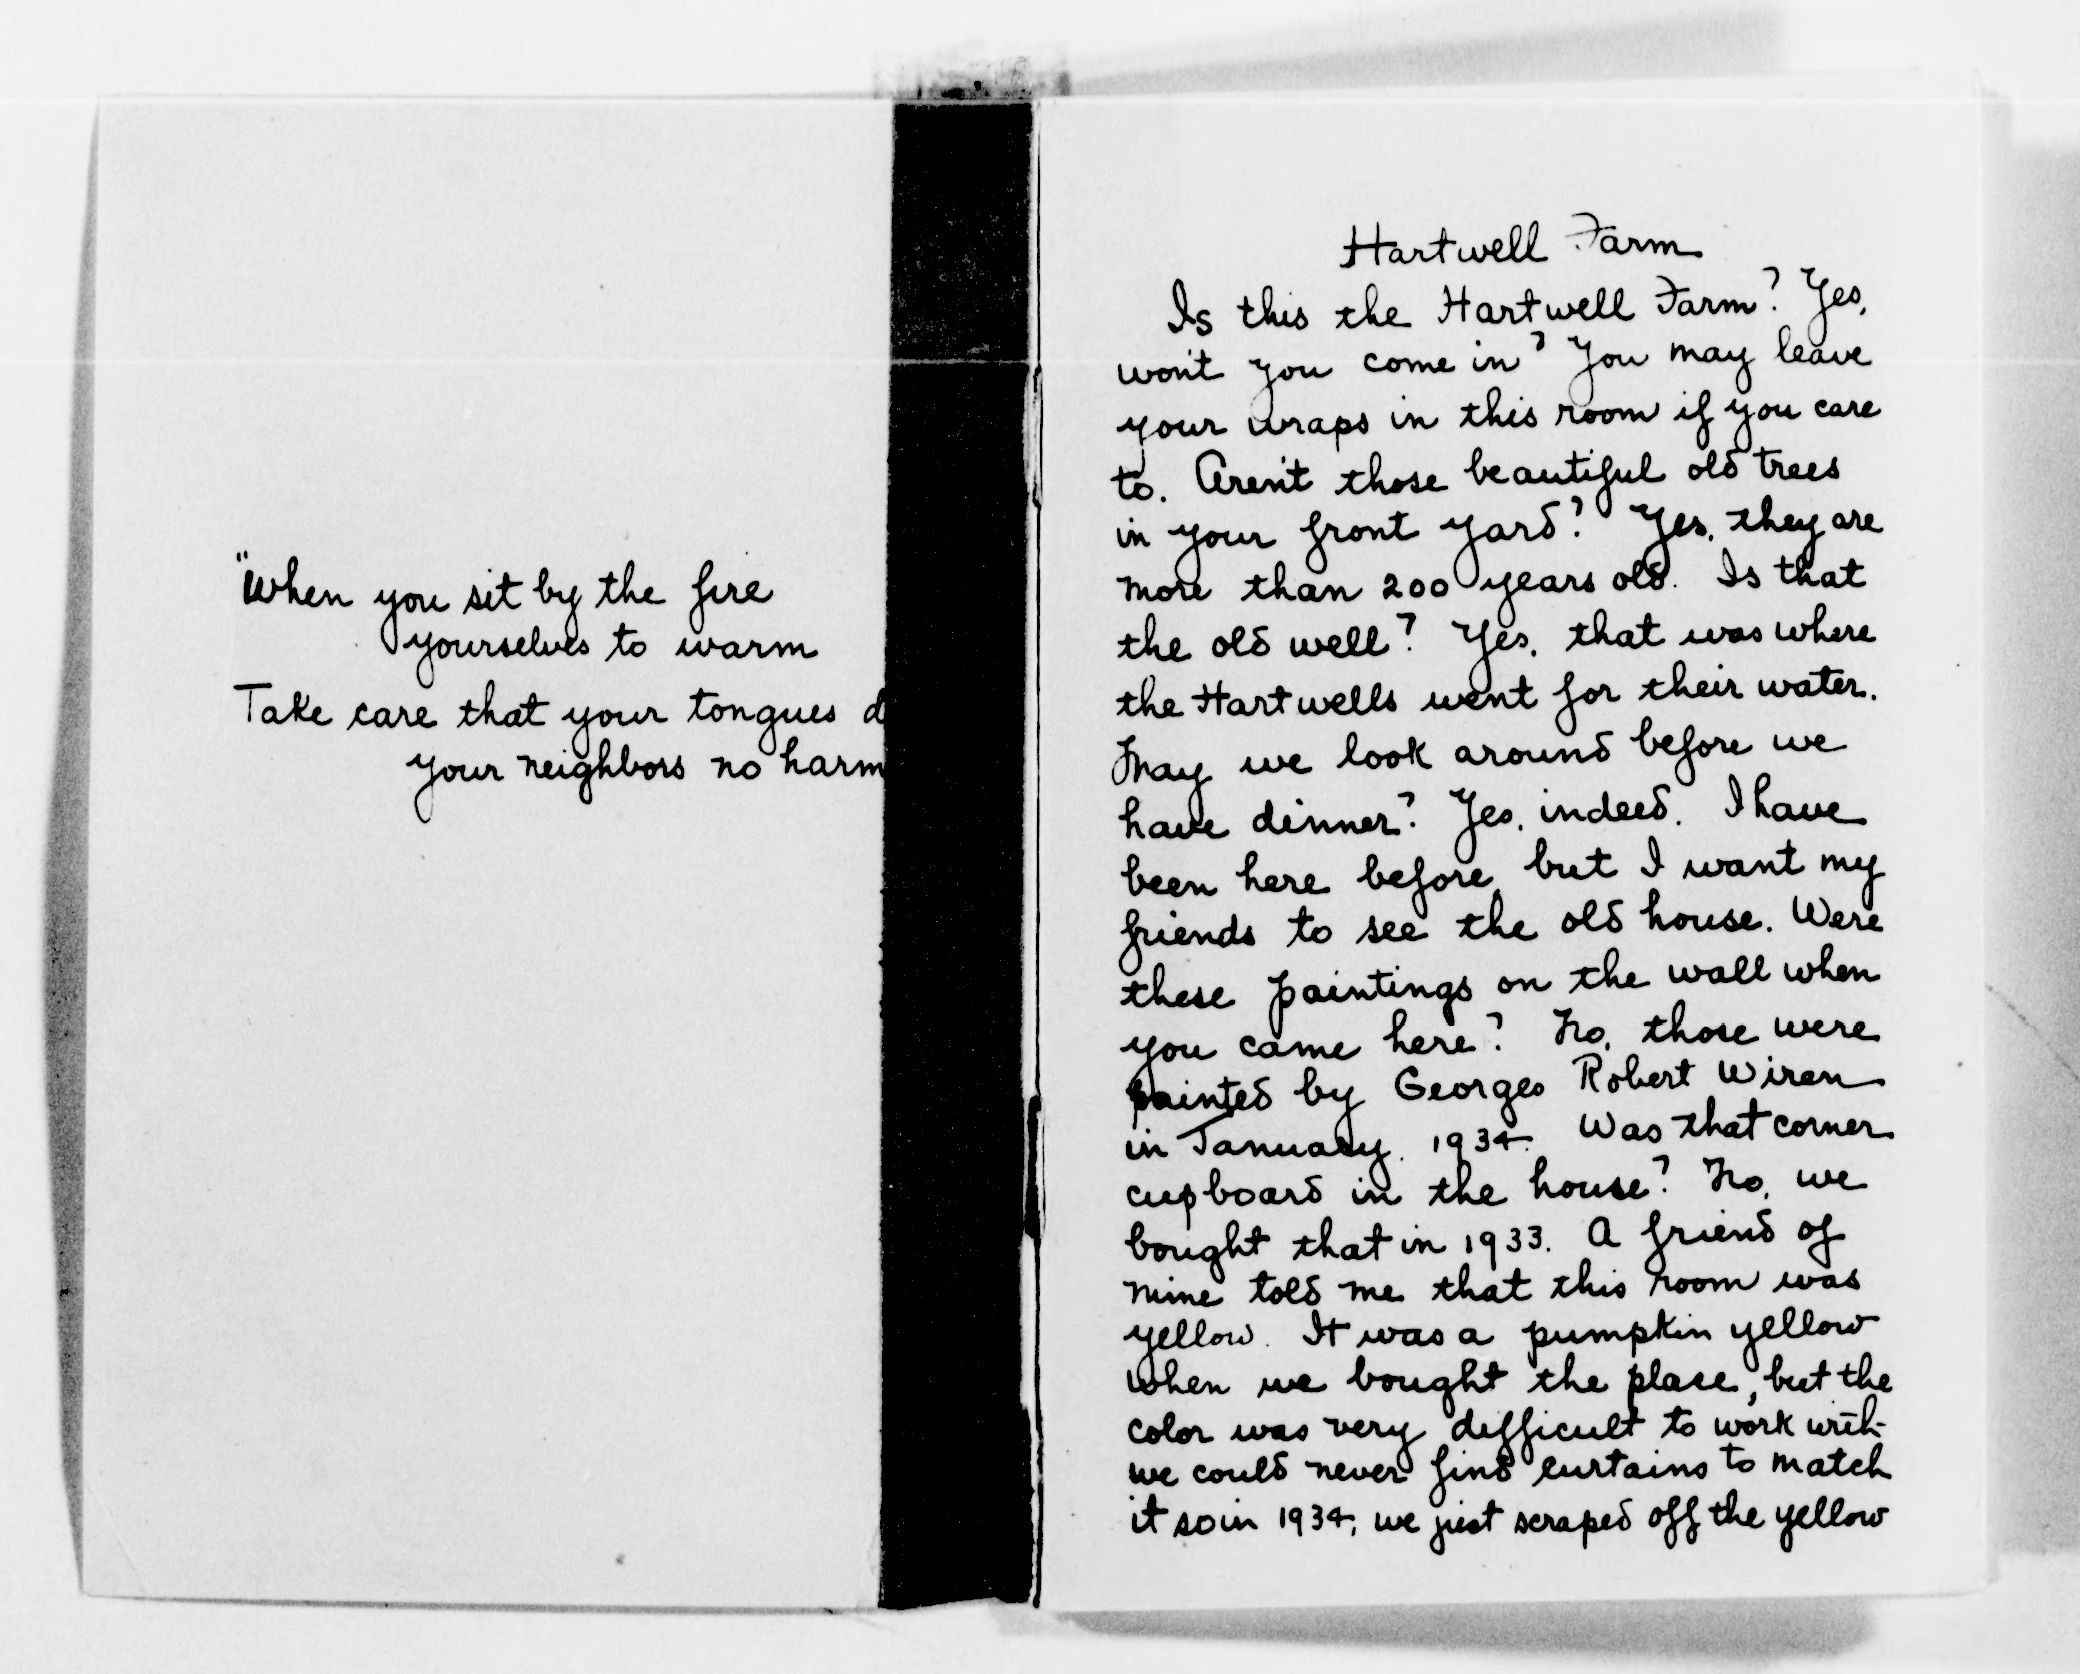 "When you sit by the fire
yourselves to warm
Take care that your tongues d
your neighbors no harm
Hartwell Farm
Is this the Hartwell Farm? Yes,
won't you come in? You may leave
your wraps in this room if you care
to. Aren't those beautiful old trees
in your front yard? Yes, they are
more than 200 years old. Is that
the old well? Yes, that was where
the Hartwells went for their water.
May we look around before we
have dinner? Yes, indeed. I have
been here before, but I want my
friends to see the old house. Were
these paintings on the wall when
you came here? No, those were
painted by Georges Robert Wiren
in January, 1934. Was that corner
cupboard in the house? No, we
bought that in 1933. A friend of
mine told me that this room was
yellow. It was a pumpkin yellow
when we bought the place, but the
color was very difficult to work with-
we could never find curtains to match
it so in 1934, we just scraped off the yellow